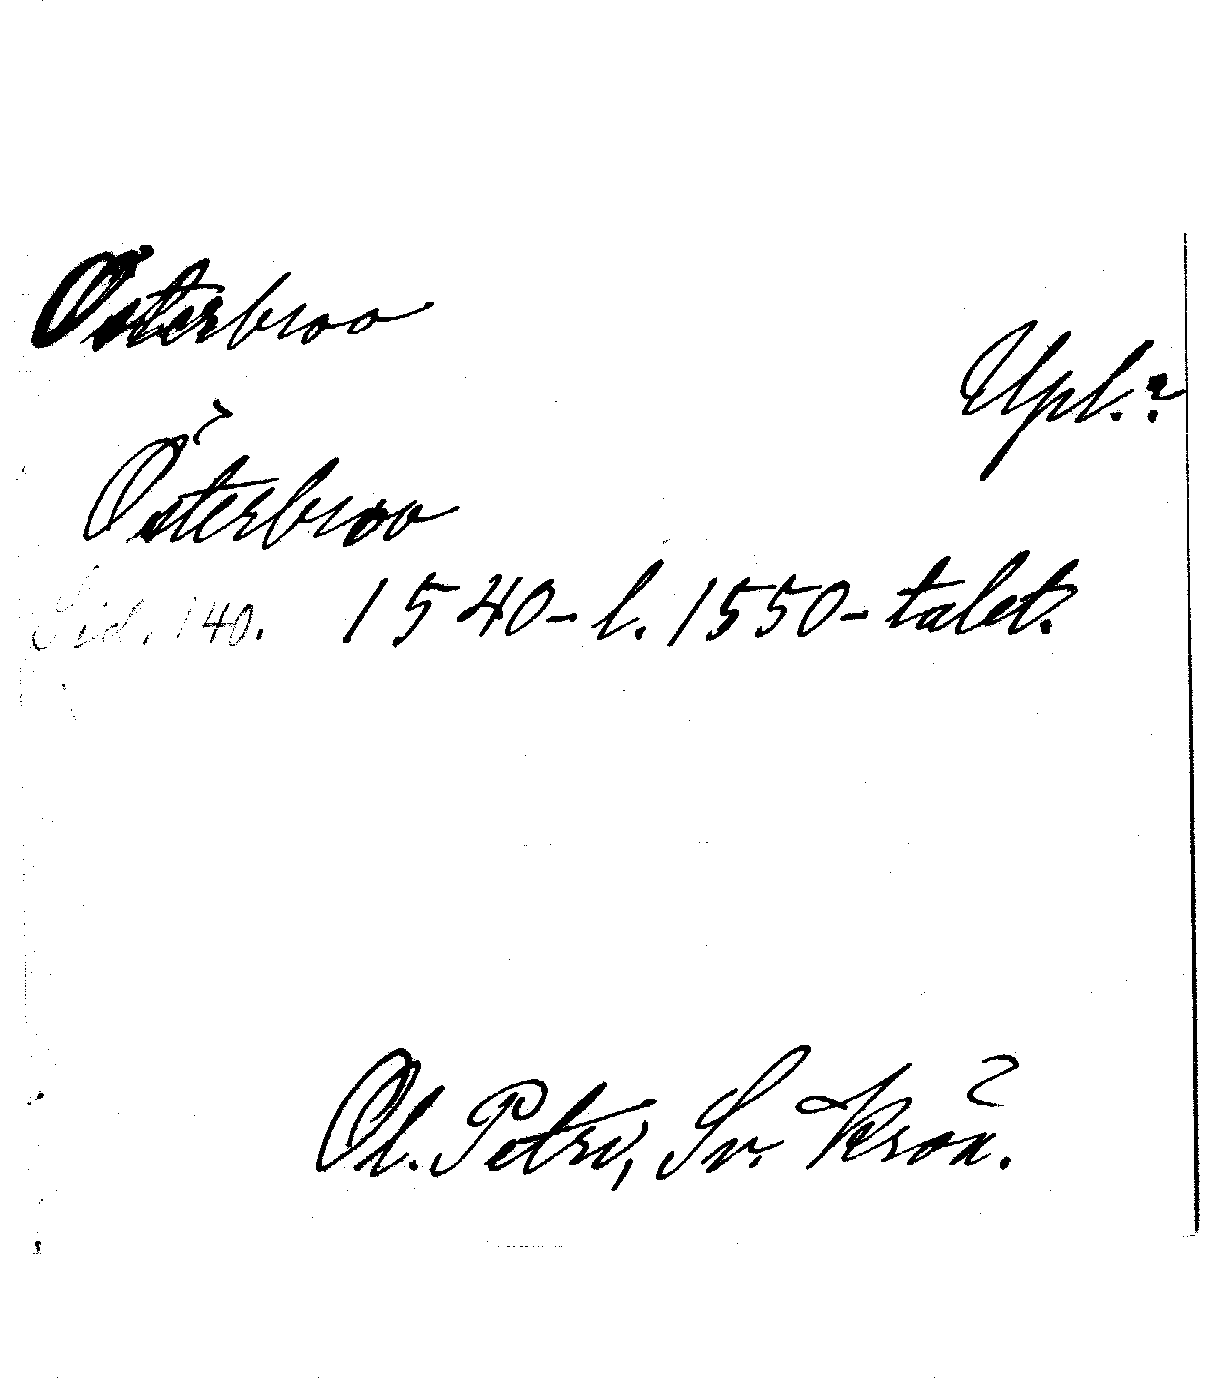 Österbroo
Upl.?
Österbroo
Sid. 140. 1540- l. 1550-talet.
Ol. Petri, Sv. Krön.